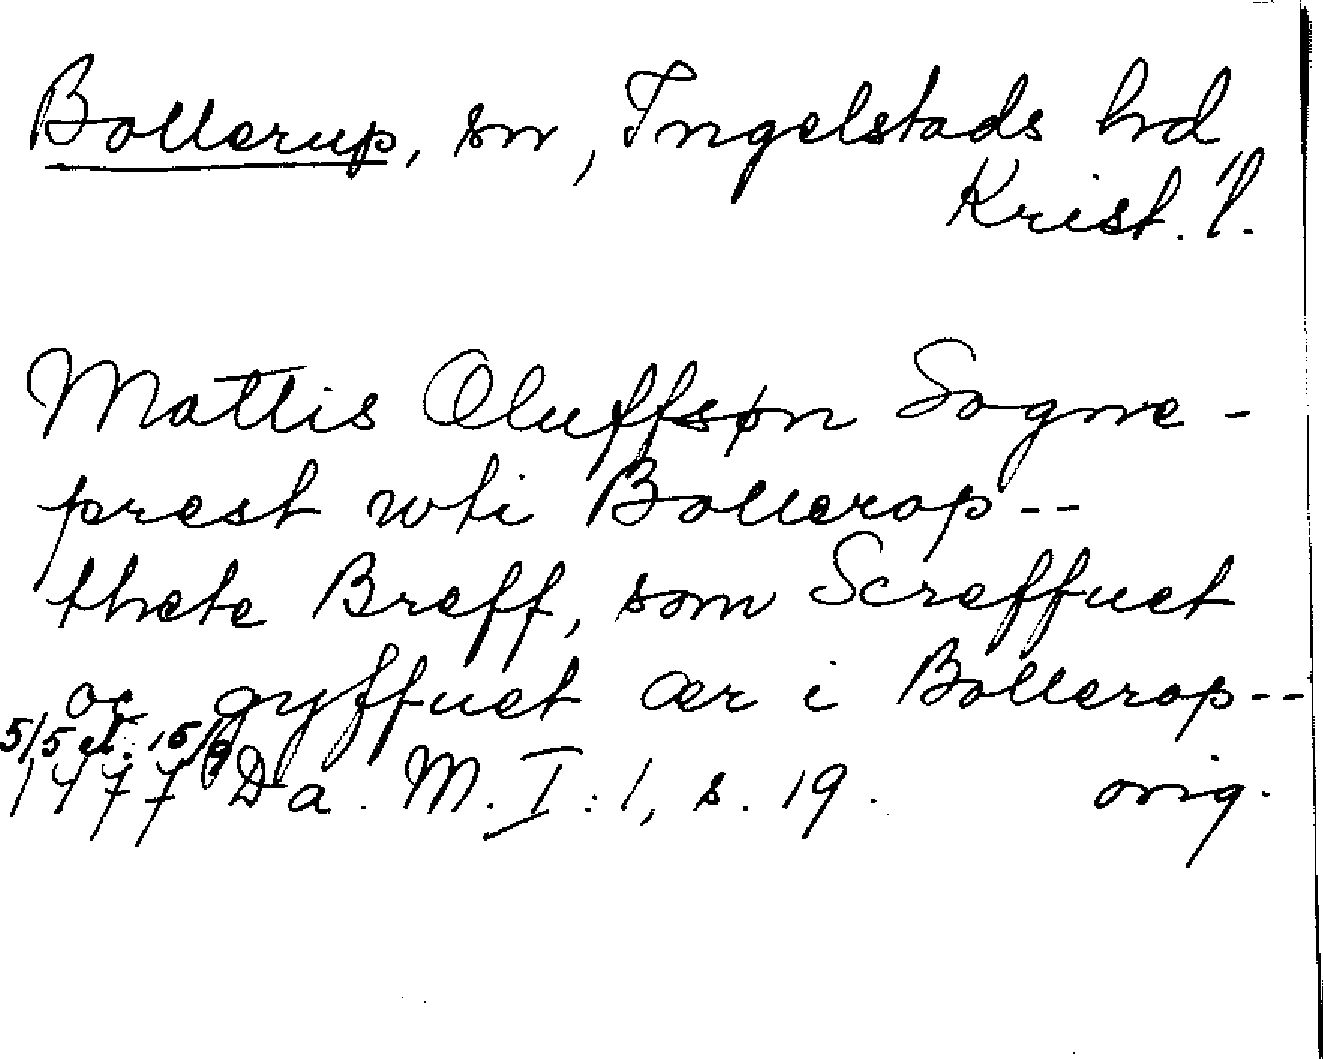 Bollerup, sn, Ingelstads hd
Krist. l.
Mattis Oluffsøn Sogne-
prest wti Bollerop--
thete Breff, som Screffuet
oc gyffuet ær i Bollerop--
5/5 el. 15/9
1477 Da. M. I:1, s. 19. orig.